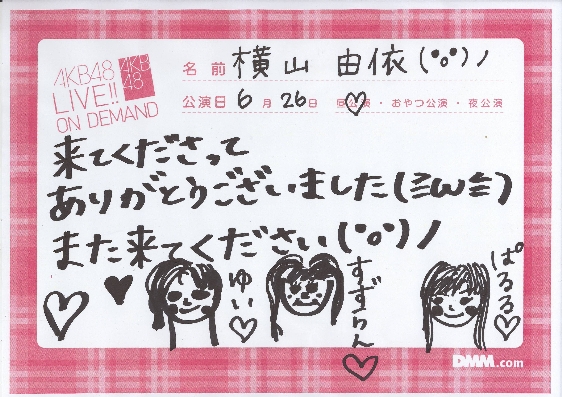 AKB48
LIVE!!
ON DEMAND
AKB
48
名前 横山 由依(°o°)ノ
公演日 6月26日 ♡公演・おやつ公演・夜公演
来てくださって
ありがとうございました(ミωミ)
また来てください(°o°)ノ
ゆい♡
すずらん♡
ぱるる♡
DMM.com